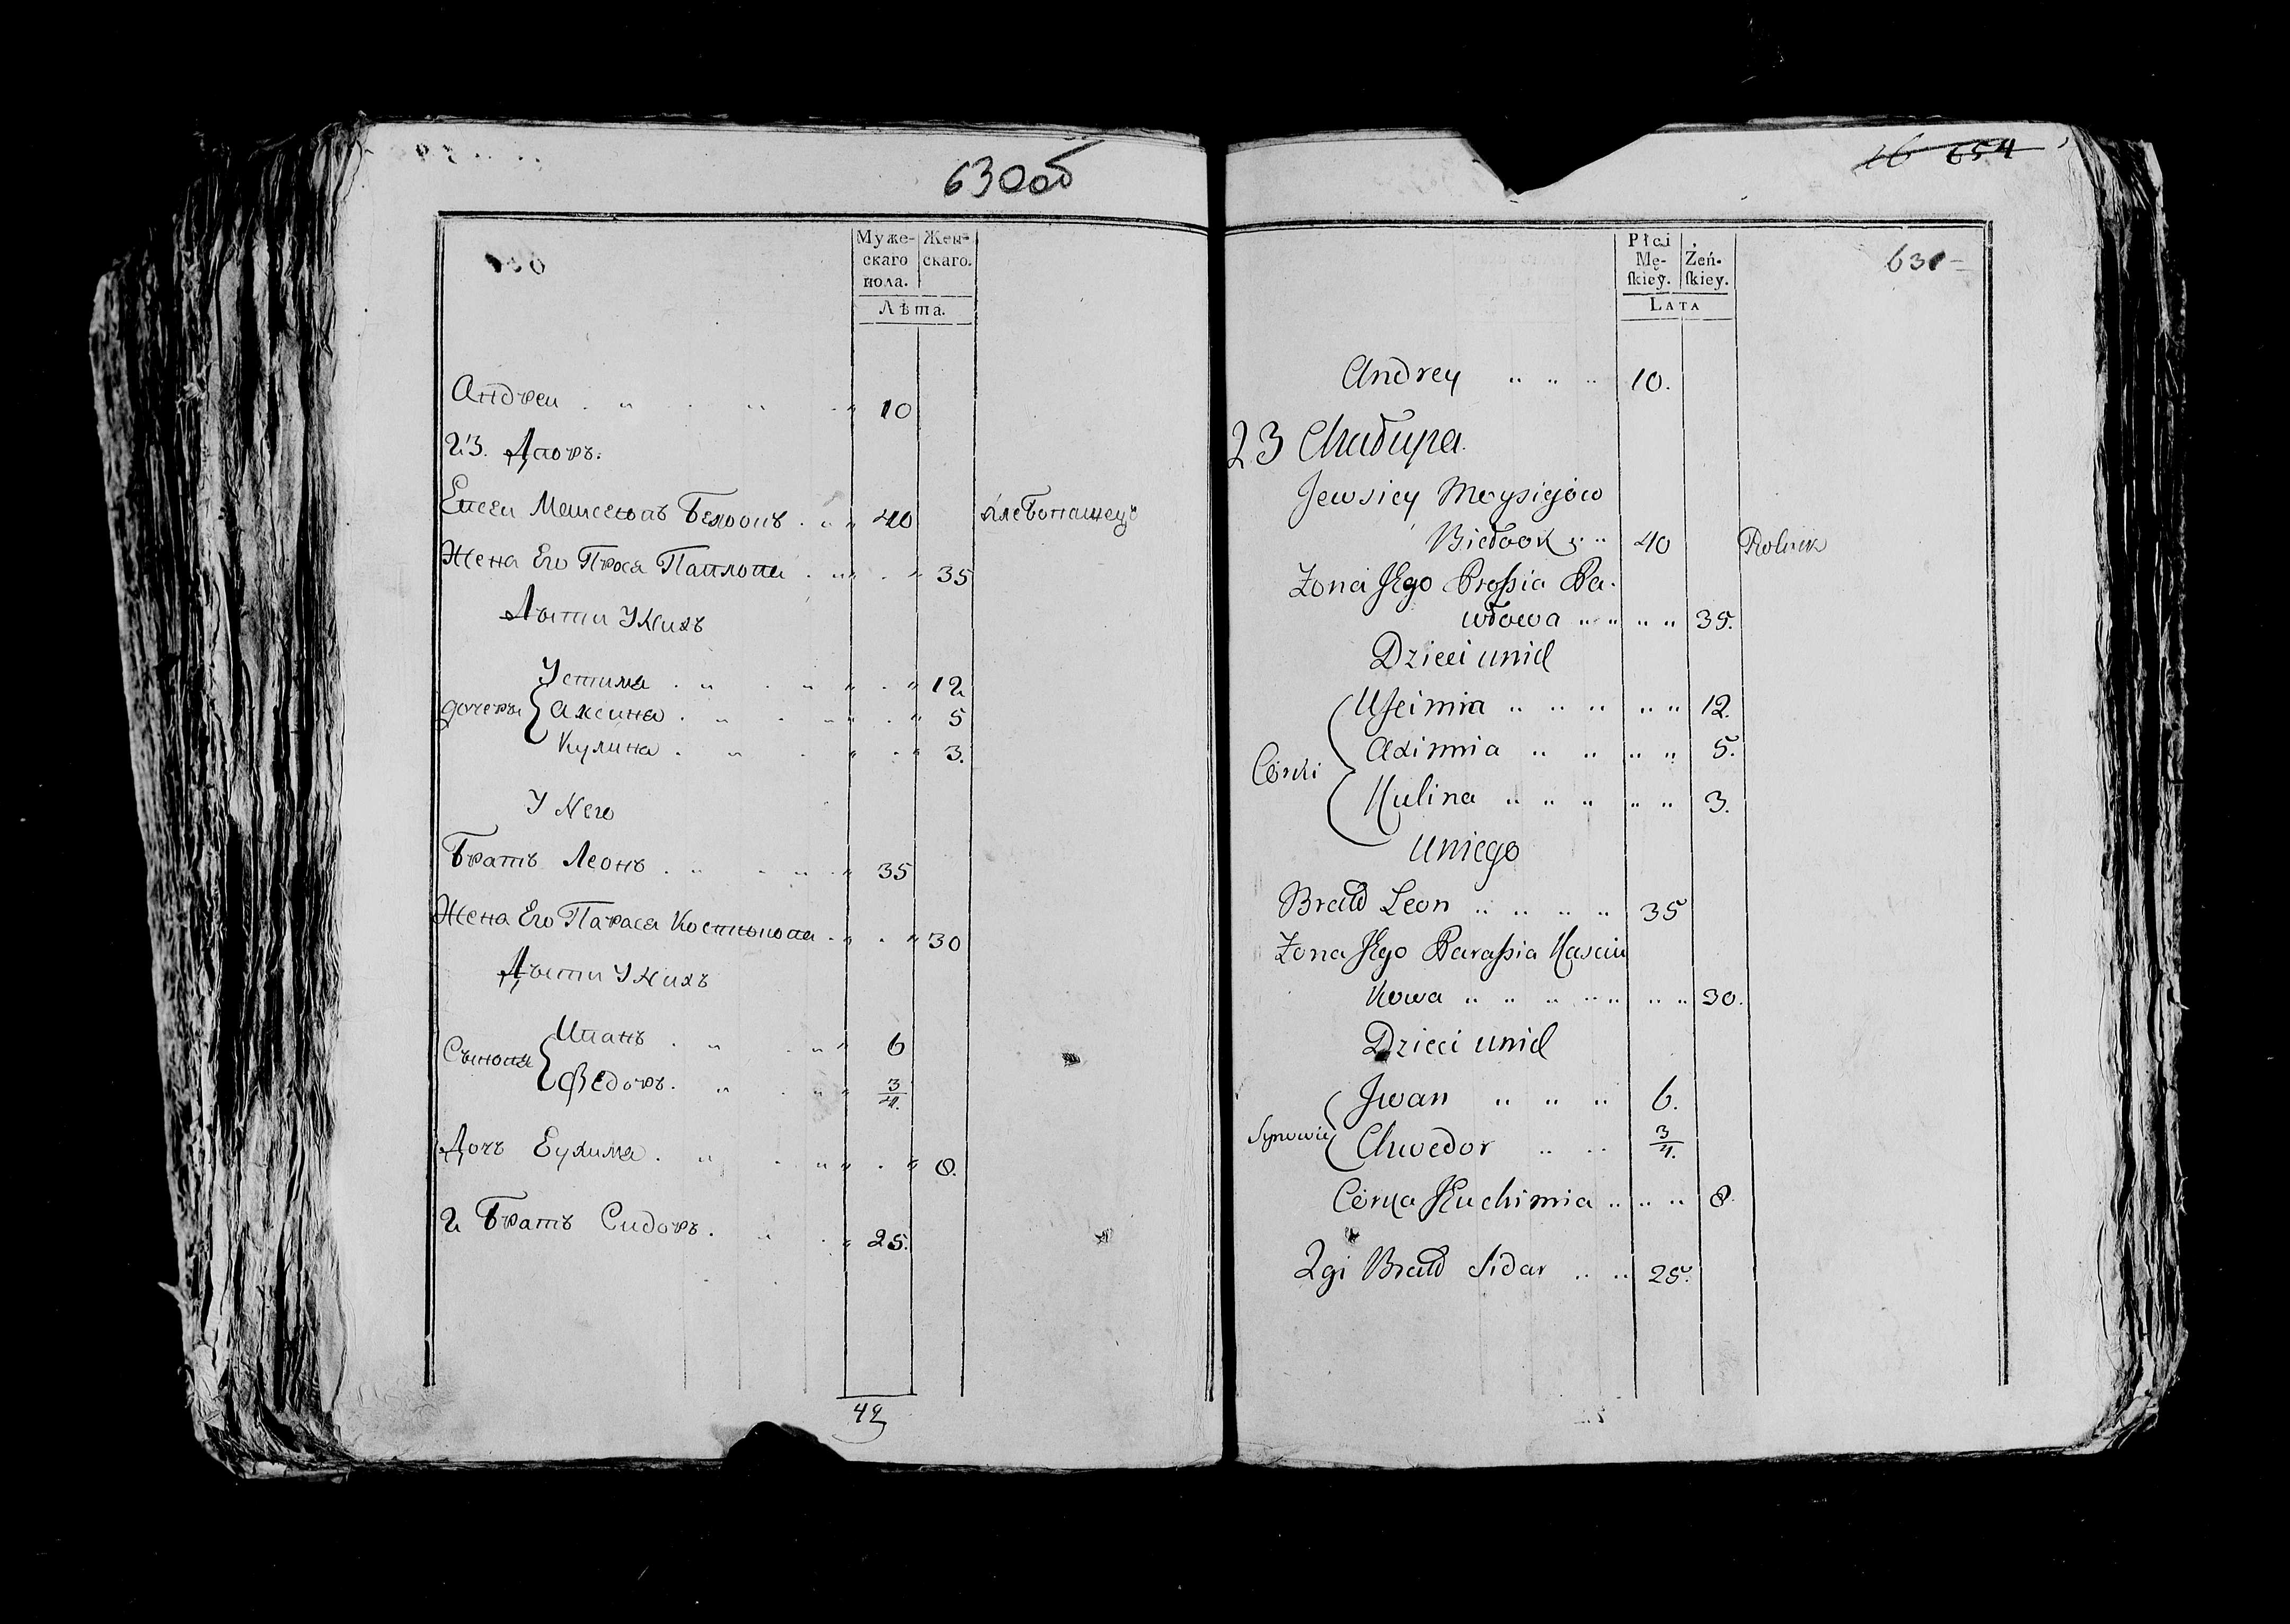 630об
Муже-
скаго
пола.
Жен-
скаго.
Лѣта.
Андреи 10
23. Дворъ:
Евсеи Моисеювъ Белоокъ 40 хлебопашецъ
Жена Его Прося Павлова 35
Дѣти У Нихъ
Устимя 12
дочеры { Аксиня 5
Кулина 3.
У Него
Братъ Леонъ 35
Жена Его Парася Костюкова 30
Дѣти У Нихъ
Иванъ 6
Сыновя { Ѳедоръ. 3/4.
Дочъ Еухимя 8.
2 Братъ Сидоръ. 25.
42
16 654
631
Płci
Mę-
ſkiey.
Żeń-
ſkiey.
Lata
Andrey 10.
23 Chałupa.
Jewsiey Moysiejow
Biełook 40 Rolnik
Zona Jego Prossia Pa-
włowa 35.
Dzieci unich
Uscimia 12.
Córki { Axinnia 5.
Kulina 3.
uniego
Bratd Leon 35
Zona Jego Parassia Kasciu
kowa 30.
Dzieci unich
Jwan 6.
Synowie { Chwedor 3/4.
Córka Jeuchimia 8.
2gi Bratd Sidar 25.